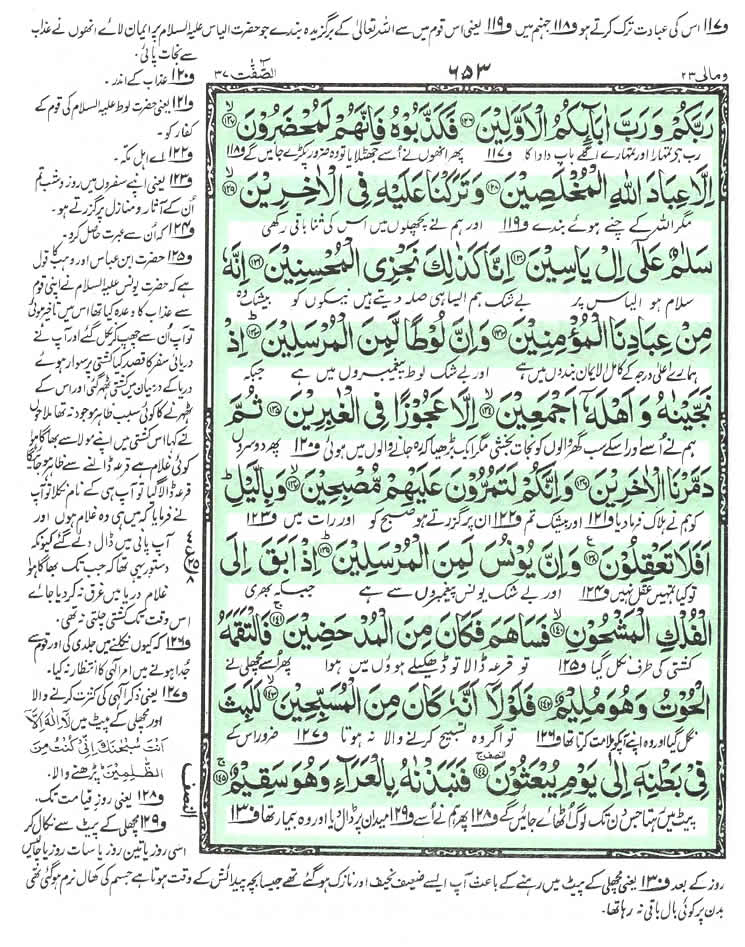 و۱۱۷ اس کی عبادت ترک کرتے ہو و۱۱۸ جہنم میں و۱۱۹ یعنی اس قوم میں سے اللہ تعالیٰ کے برگزیدہ بندے جو حضرت الیاس علیہ السلام پر ایمان لائے انھوں نے عذاب
سے نجات پائی۔
ومالی ۲۳
۶۵۳
الصّٰفّٰت ۳۷
رَبَّكُمْ وَرَبَّ اٰبَآئِكُمُ الْاَوَّلِيْنَ ۱۲۶ فَكَذَّبُوْهُ فَاِنَّهُمْ لَمُحْضَرُوْنَ ۱۲۷
رب ہے تمہارا اور تمہارے اگلے باپ دادا کا و۱۱۷ پھر انھوں نے اُسے جھٹلایا تو وہ ضرور پکڑے جائیں گے و۱۱۸
اِلَّا عِبَادَ اللّٰهِ الْمُخْلَصِيْنَ ۱۲۸ وَتَرَكْنَا عَلَيْهِ فِى الْاٰخِرِيْنَ ۱۲۹
مگر اللہ کے چنے ہوئے بندے و۱۱۹ اور ہم نے پچھلوں میں اس کی ثنا باقی رکھی
سَلٰمٌ عَلٰٓى اِلْ يَاسِيْنَ ۱۳۰ اِنَّا كَذٰلِكَ نَجْزِى الْمُحْسِنِيْنَ ۱۳۱ اِنَّهٗ
سلام ہو الیاس پر بے شک ہم ایسا ہی صلہ دیتے ہیں نیکوں کو بیشک وہ
مِنْ عِبَادِنَا الْمُؤْمِنِيْنَ ۱۳۲ وَاِنَّ لُوْطًا لَّمِنَ الْمُرْسَلِيْنَ ۱۳۳ اِذْ
ہمارے اعلیٰ درجہ کے کامل الایمان بندوں میں ہے اور بے شک لوط پیغمبروں میں ہے جبکہ
نَجَّيْنٰهُ وَاَهْلَهٗٓ اَجْمَعِيْنَ ۱۳۴ اِلَّا عَجُوْزًا فِى الْغٰبِرِيْنَ ۱۳۵ ثُمَّ
ہم نے اُسے اور اسکے سب گھر والوں کو نجات بخشی مگر ایک بڑھیا کہ رہ جانے والوں میں ہوئی و۱۲۰ پھر دوسروں
دَمَّرْنَا الْاٰخَرِيْنَ ۱۳۶ وَاِنَّكُمْ لَتَمُرُّوْنَ عَلَيْهِمْ مُّصْبِحِيْنَ ۱۳۷ وَبِالَّيْلِ
کو ہم نے ہلاک فرما دیا و۱۲۱ اور بیشک تم و۱۲۲ ان پر گزرتے ہو صبح کو اور رات میں و۱۲۳
اَفَلَا تَعْقِلُوْنَ ۱۳۸ وَاِنَّ يُوْنُسَ لَمِنَ الْمُرْسَلِيْنَ ۱۳۹ اِذْ اَبَقَ اِلَى
تو کیا تمہیں عقل نہیں و۱۲۴ اور بے شک یونس پیغمبروں سے ہے جبکہ بھری
الْفُلْكِ الْمَشْحُوْنِ ۱۴۰ فَسَاهَمَ فَكَانَ مِنَ الْمُدْحَضِيْنَ ۱۴۱ فَالْتَقَمَهُ
کشتی کی طرف نکل گیا و۱۲۵ تو قرعہ ڈالا تو ڈھکیلے ہوؤں میں ہوا پھر اُسے مچھلی نے
الْحُوْتُ وَهُوَ مُلِيْمٌ ۱۴۲ فَلَوْلَآ اَنَّهٗ كَانَ مِنَ الْمُسَبِّحِيْنَ ۱۴۳ لَلَبِثَ
نگل لیا اور وہ اپنے آپ کو ملامت کرتا تھا و۱۲۶ تو اگر وہ تسبیح کرنے والا نہ ہوتا و۱۲۷ ضرور اس کے
فِىْ بَطْنِهٖٓ اِلٰى يَوْمِ يُبْعَثُوْنَ ۱۴۴ فَنَبَذْنٰهُ بِالْعَرَآءِ وَهُوَ سَقِيْمٌ ۱۴۵
پیٹ میں رہتا جس دن تک لوگ اُٹھائے جائیں گے و۱۲۸ پھر ہم نے اُسے و۱۲۹ میدان پر ڈال دیا اور وہ بیمار تھا و۱۳۰
و۱۲۰ عذاب کے اندر۔
و۱۲۱ یعنی حضرت لوط علیہ السلام کی قوم کے
کفار کو۔
و۱۲۲ اے اہل مکہ۔
و۱۲۳ یعنی اپنے سفروں میں روز و شب تم
اُن کے آثار و منازل پر گزرتے ہو۔
و۱۲۴ کہ اُن سے عبرت حاصل کرو۔
و۱۲۵ حضرت ابن عباس اور وہب کا قول
ہے کہ حضرت یونس علیہ السلام نے اپنی قوم
سے عذاب کا وعدہ کیا تھا اس میں تاخیر ہوئی
تو آپ اُن سے چھپ کر نکل گئے اور آپ نے
دریائی سفر کا قصد کیا کشتی پر سوار ہوئے
دریا کے درمیان میں کشتی ٹھہر گئی اور اس کے
ٹھہرنے کا کوئی سبب ظاہر موجود نہ تھا ملاحوں
نے کہا اس کشتی میں اپنے مولا سے بھاگا ہوا
کوئی غلام ہے قرعہ ڈالنے سے ظاہر ہو جائیگا
قرعہ ڈالا گیا تو آپ ہی کے نام نکلا تو آپ
نے فرمایا کہ میں ہی وہ غلام ہوں اور
آپ پانی میں ڈال دیئے گئے کیونکہ
دستور یہی تھا کہ جب تک بھاگا ہوا
غلام دریا میں غرق نہ کر دیا جائے
اس وقت تک کشتی چلتی نہ تھی۔
و۱۲۶ کہ کیوں نکلنے میں جلدی کی اور قوم سے
جُدا ہونے میں امر الٰہی کا انتظار نہ کیا۔
و۱۲۷ یعنی ذکر الٰہی کی کثرت کرنے والا
اور مچھلی کے پیٹ میں لَآ اِلٰهَ اِلَّآ
اَنْتَ سُبْحٰنَكَ اِنِّىْ كُنْتُ مِنَ
الظّٰلِمِيْنَ پڑھنے والا۔
و۱۲۸ یعنی روز قیامت تک۔
و۱۲۹ مچھلی کے پیٹ سے نکال کر
اسی روز یا تین روز یا سات روز یا چالیس
روز کے بعد و۱۳۰ یعنی مچھلی کے پیٹ میں رہنے کے باعث آپ ایسے ضعیف نحیف اور نازک ہو گئے تھے جیسا بچہ پیدائش کے وقت ہوتا ہے جسم کی کھال نرم ہو گئی تھی
بدن پر کوئی بال باقی نہ رہا تھا۔
النصف